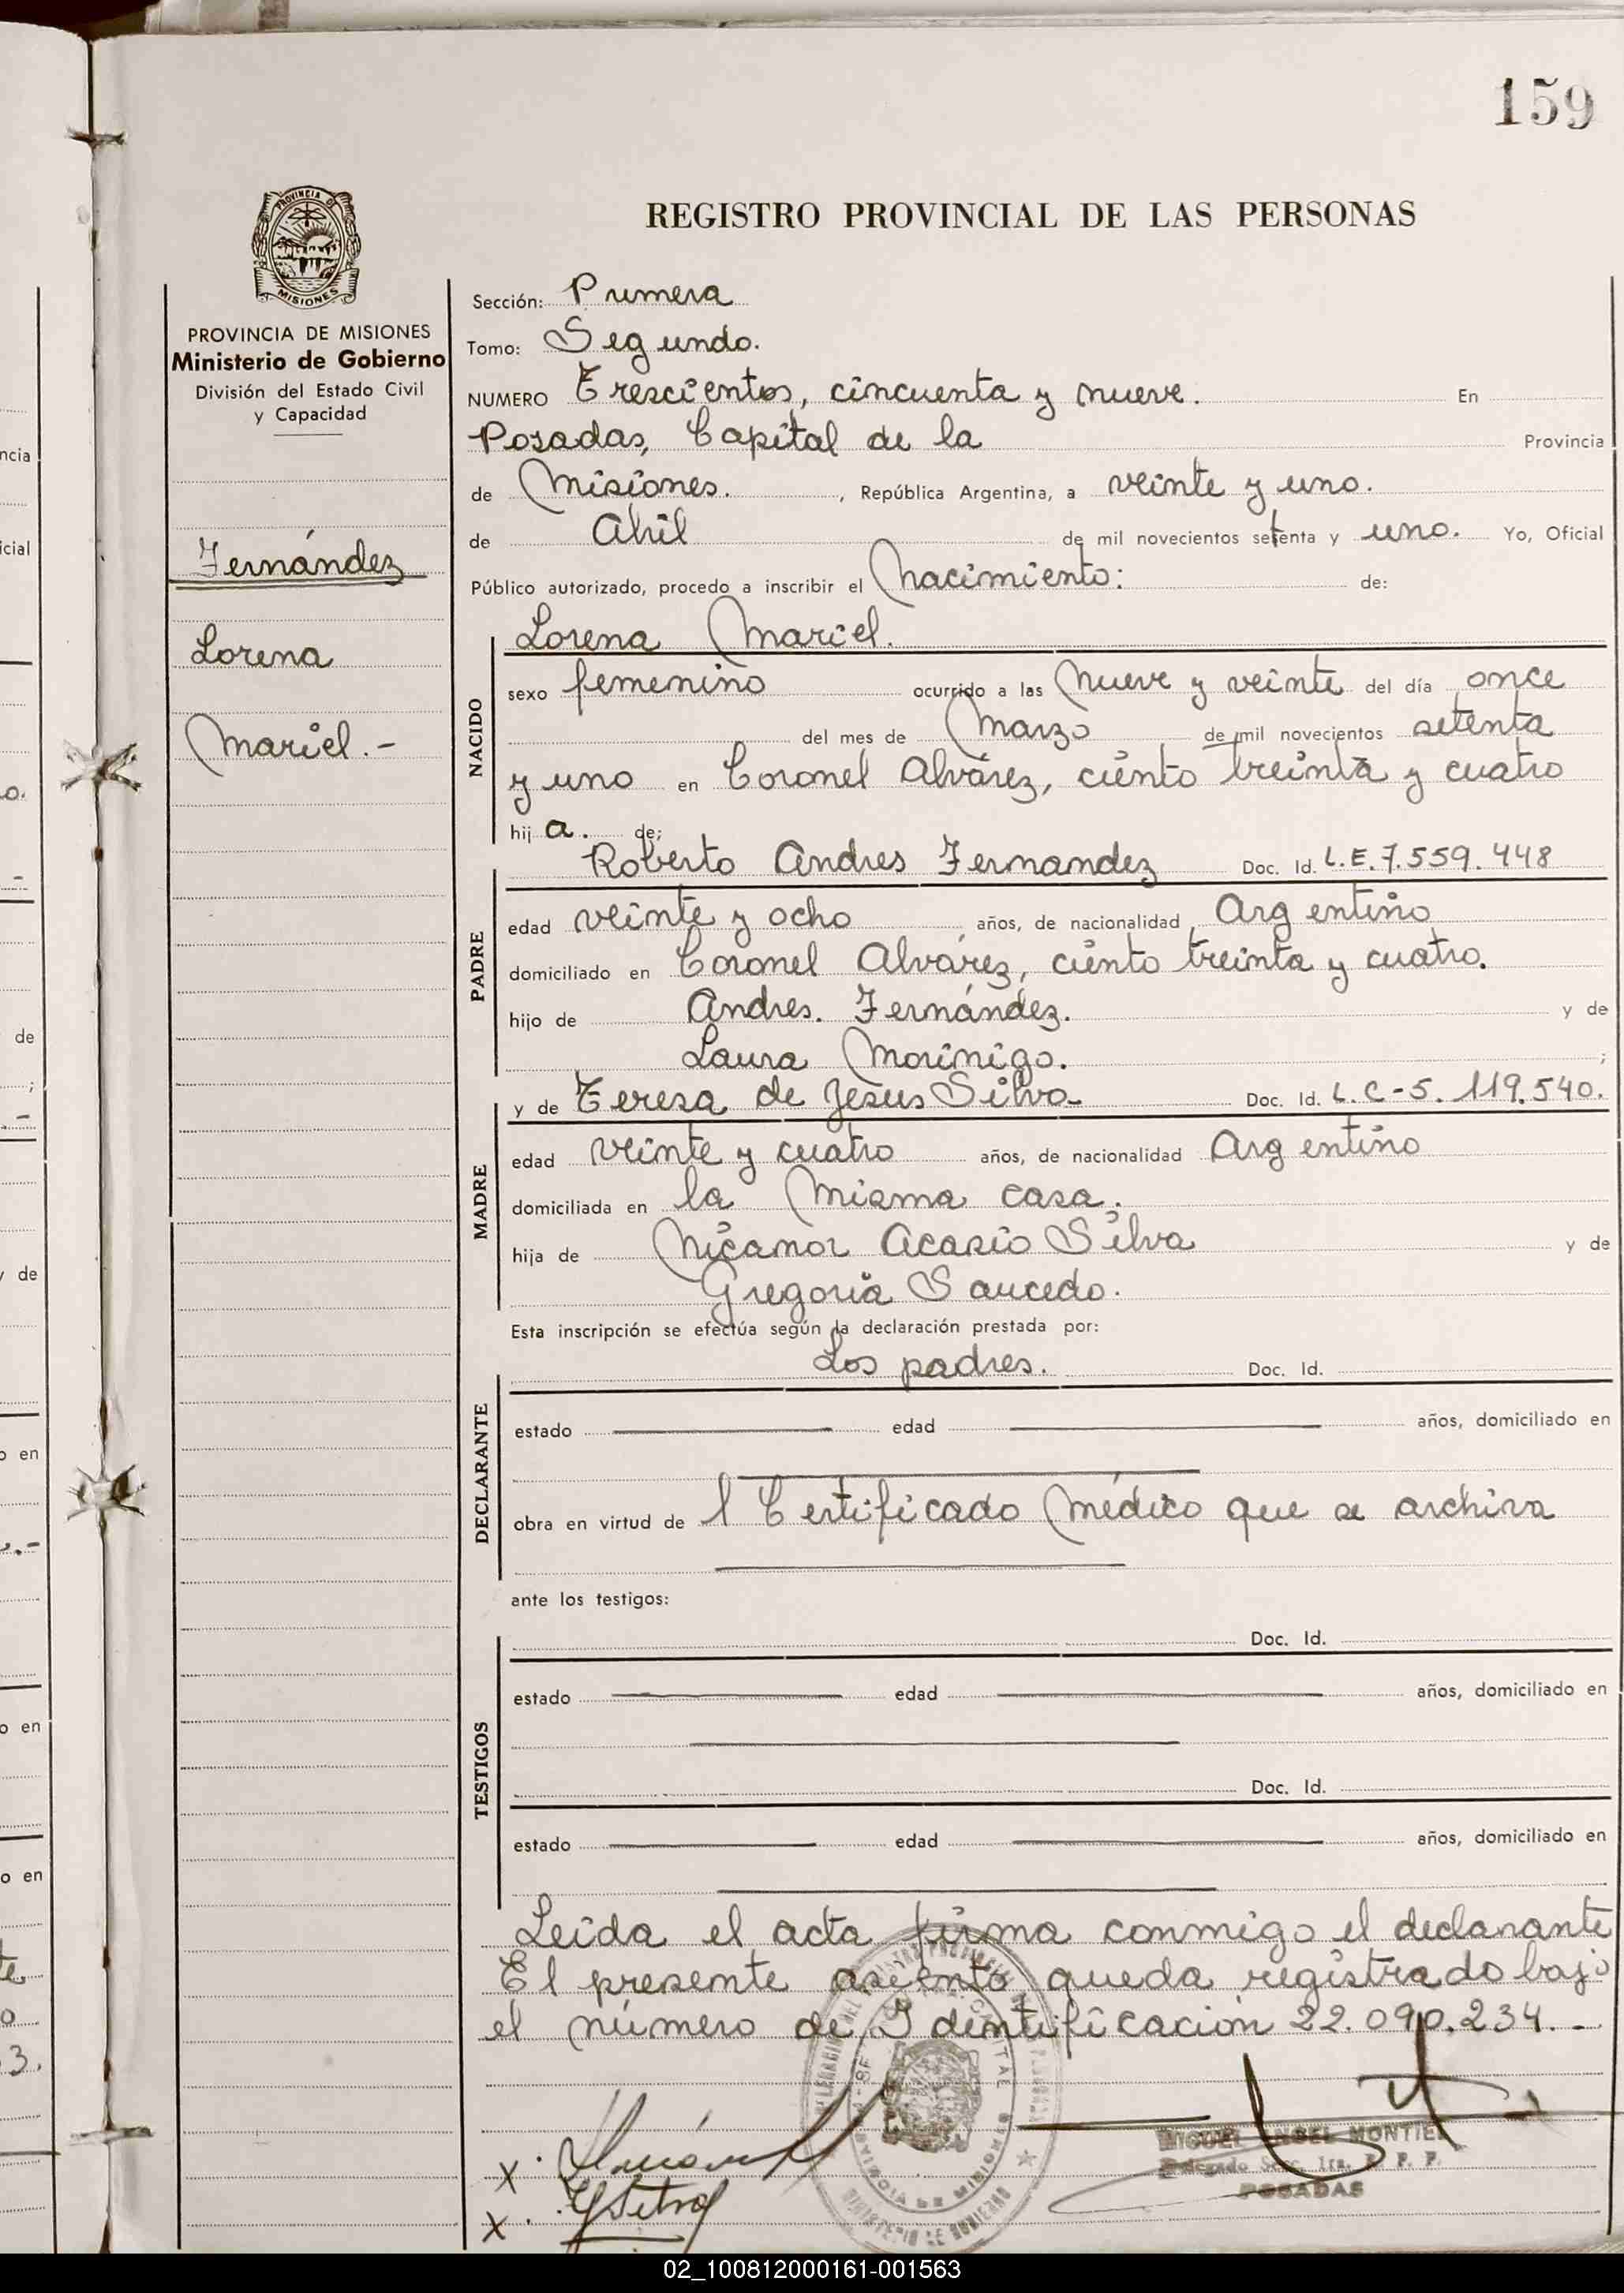 159
PROVINCIA DE
MISIONES
REGISTRO PROVINCIAL DE LAS PERSONAS
PROVINCIA DE MISIONES
Ministerio de Gobierno
División del Estado Civil
y Capacidad
Fernández
Lorena
Mariel.-
Sección: Primera
Tomo: Segundo.
NUMERO Trescientos, cincuenta y nueve. En
Posadas, Capital de la Provincia
de Misiones. , República Argentina, a veinte y uno.
de Abril de mil novecientos setenta y uno. Yo, Oficial
Público autorizado, procedo a inscribir el Nacimiento: de:
Lorena Mariel.
NACIDO
sexo femenino ocurrido a las Nueve y veinte del día once
del mes de Marzo de mil novecientos setenta
y uno en Coronel Alvárez, ciento treinta y cuatro
hij a. de;
Roberto Andres Fernandez Doc. Id. L.E. 7.559.448
PADRE
edad veinte y ocho años, de nacionalidad Argentino
domiciliado en Coronel Alvárez, ciento treinta y cuatro.
hijo de Andres. Fernández. y de
Laura Morinigo. ;
y de Teresa de Jesus Silva Doc. Id. L.C-5.119.540.
MADRE
edad veinte y cuatro años, de nacionalidad Argentino
domiciliada en la Misma casa.
hija de Nicanor Acasio Silva y de
Gregoria Saucedo.
Esta inscripción se efectúa según la declaración prestada por:
Los padres. Doc. Id.
DECLARANTE
estado edad años, domiciliado en
obra en virtud de l Certificado Médico que se archiva
ante los testigos:
TESTIGOS
Doc. Id.
estado edad años, domiciliado en
Doc. Id.
estado edad años, domiciliado en
Leida el acta firma conmigo el declarante
El presente asiento queda registrado bajo
el número de Identificación 22.090.234.-
MIGUEL ANGEL MONTIEL
Delegado Secc. 1ra. R. P. P.
POSADAS
x
x
02_100812000161-001563